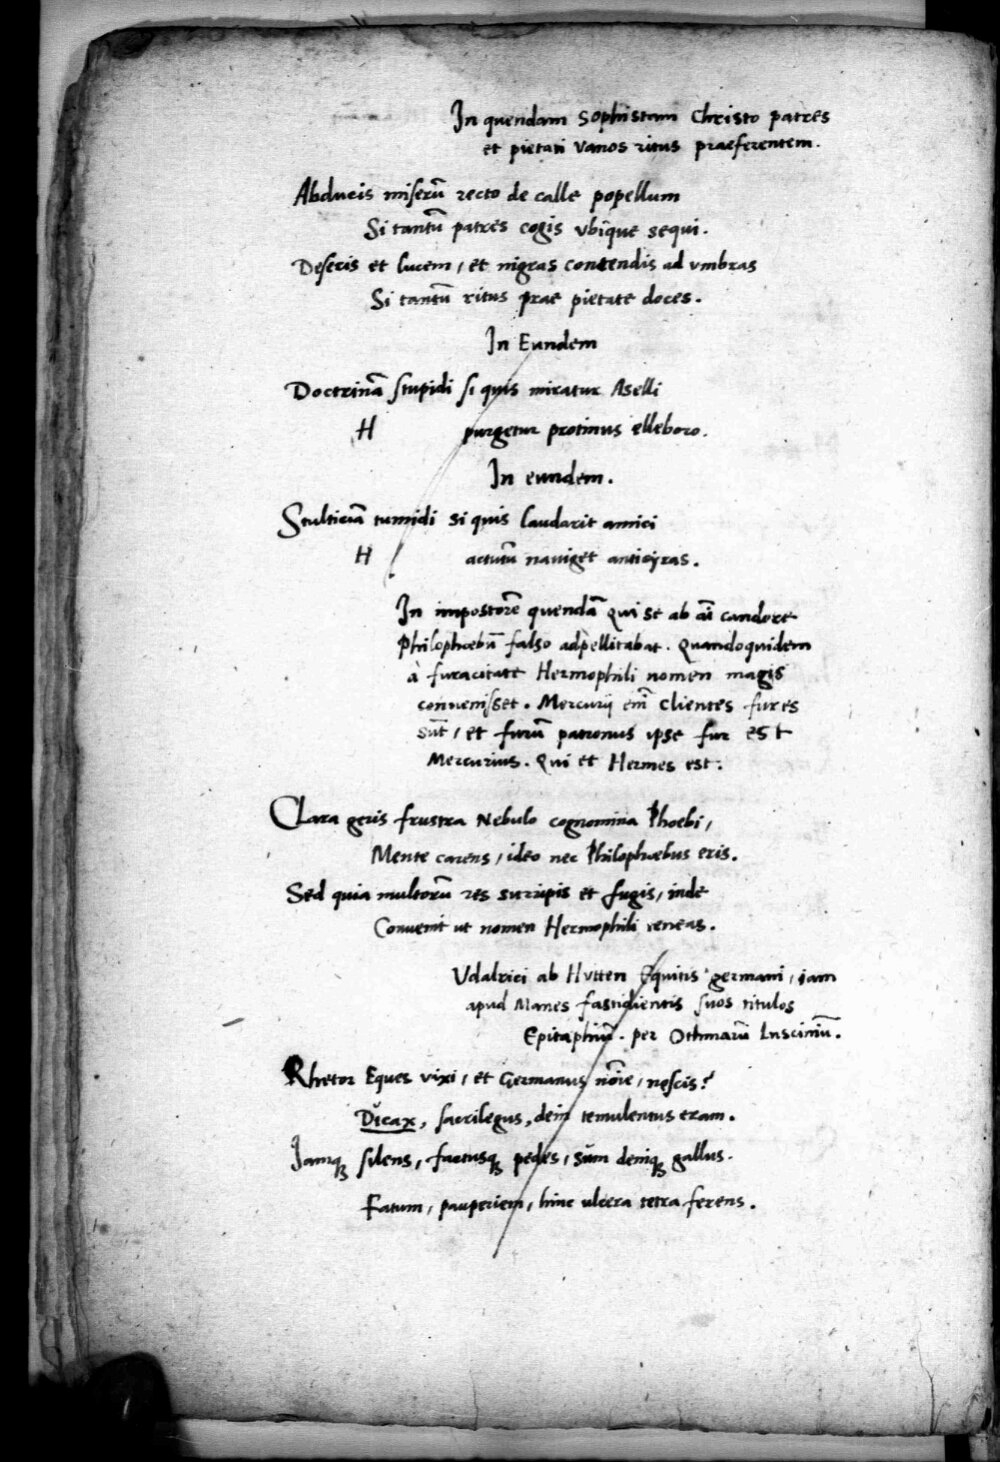 In quendam Sophistam Christo patres
et pietati vanos ritus praeferentem.
Abducis miserū recto de calle popellum
Si tantū patres cogis vbique sequi.
Deseris et lucem, et nigras contendis ad vmbras
Si tantū ritus prae pietate doces.
In Eundem
Doctrinā stupidi si quis miratur Aselli
H purgetur protinus elleboro.
In eundem.
Stulticiā tumidi si quis laudarit amici
H actutū nauiget anticyras.
In impostorē quendā qui se ab aī candore
Philophoebū falso adpellitabat. Quandoquidem
à furacitate Hermophili nomen magis
conuenisset. Mercurij em̄ clientes fures
sūt, et furū patronus ipse fur est
Mercurius. Qui et Hermes est.
Clara geris frustra Nebulo cognomina Phoebi,
Mente carens, ideo nec Philophoebus eris.
Sed quia multorū res surripis et fugis, inde
Conuenit ut nomen Hermophili teneas.
Vdalrici ab Hutten Equitis germani, iam
apud Manes fastidientis suos titulos
Epitaphiū. per Othmarū Lusciniū.
Rhetor Eques vixi, et Germanus nōie, noscis?
Dicax, sacrilegus, dein temulentus eram.
Iamqꝫ silens, factusqꝫ pedes, sum deniqꝫ gallus.
Fatum, pauperiem, hinc ulcera tetra ferens.